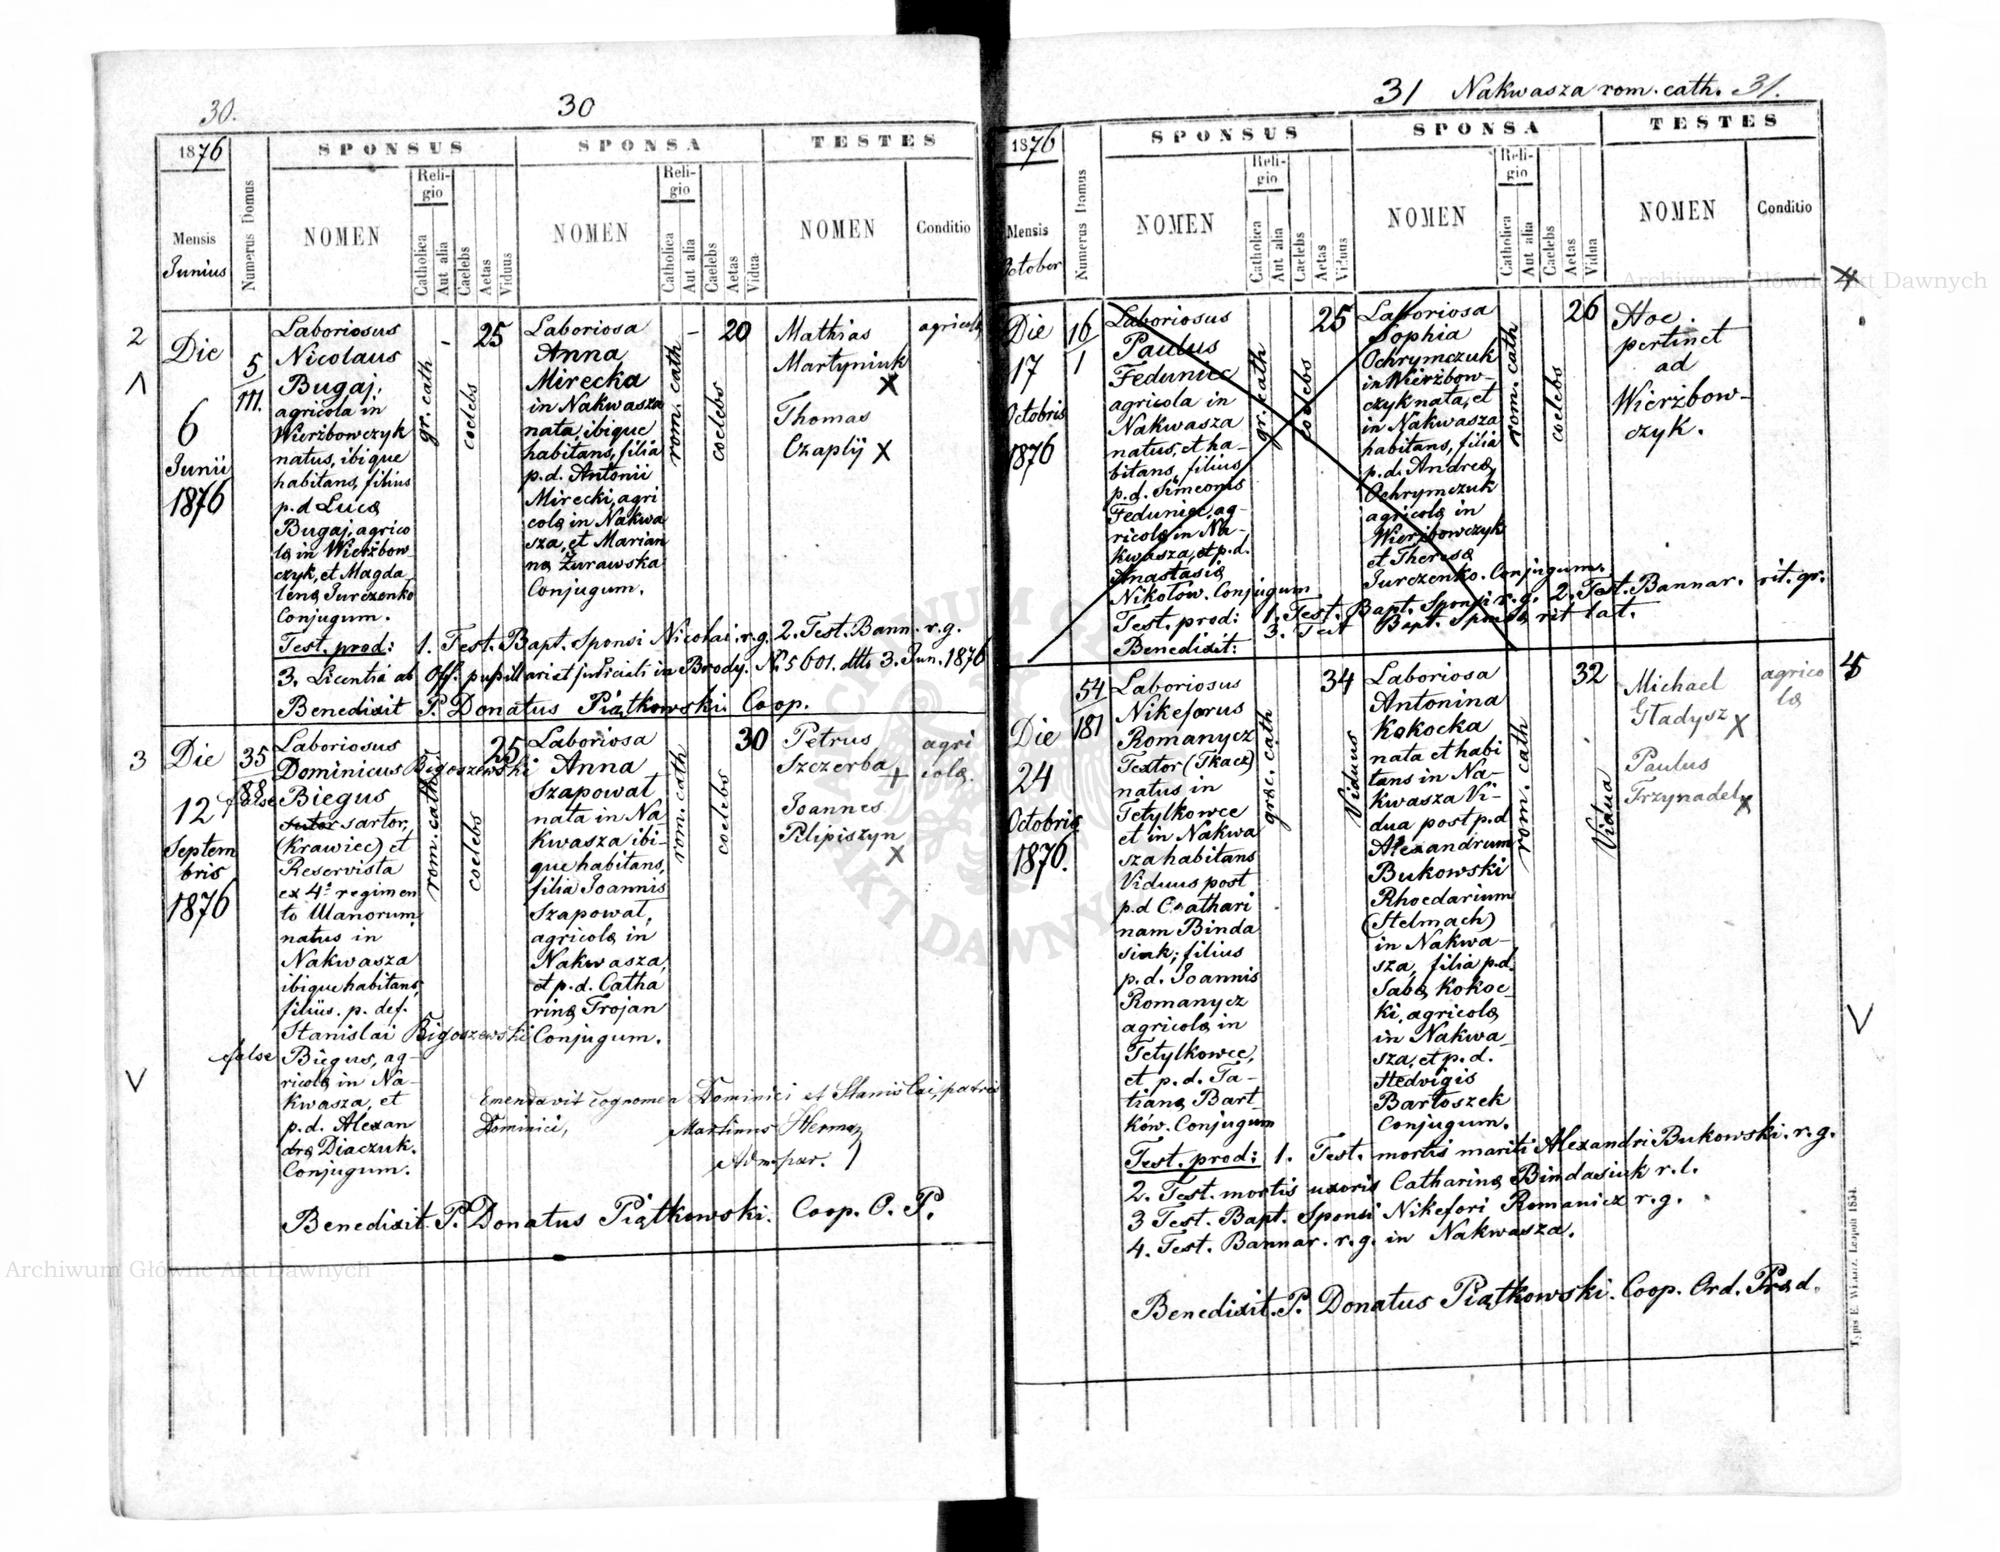 30.
30
1876
SPONSUS
SPONSA
TESTES
Mensis
Junius
Numerus Domus
NOMEN
Reli-
gio
Catholica
Aut alia
Caelebs
Aetas
Viduus
NOMEN
Reli-
gio
Catholica
Aut alia
Caelebs
Aetas
Vidua
NOMEN
Conditio
2
Die
6
Junii
1876
5
111.
Laboriosus
Nicolaus
Bugaj,
agricola in
Wierzbowczyk
natus, ibique
habitans, filius
p.d Lucæ
Bugaj, agrico
læ in Wierzbow
czyk, et Magda
lenæ Jurczenko
Conjugum.
gr. cath
coelebs
25
Laboriosa
Anna
Mirecka
in Nakwasza
nata, ibique
habitans, filia
p.d. Antonii
Mirecki, agri
colæ in Nakwa
sza, et Marian
næ Żurawska
Conjugum.
rom. cath
coelebs
20
Mathias
Martyniuk
X
Thomas
Czaplij X
agricolæ
Test. prod: 1. Test. Bapt. Sponsi Nicolai. r.g. 2. Test. Bann. r.g.
3. Licentia ab Off. pupillari et judiciali in Brody. N. 5601. dtto 3. Jun. 1876
Benedixit P. Donatus Piątkowski Coop.
3
Die
12
Septem
bris
1876
35
88
false
Laboriosus
Dominicus Bigoszewski
Biegus
sutor sartor,
(Krawiec) et
Reservista
ex 4º regimen
to Ulanorum
natus in
Nakwasza
ibique habitans,
filius. p. def.
Stanislai Bigoszewski
false Biegus, ag-
ricolæ in Na-
kwasza, et
p.d. Alexan
dræ Diaczuk.
Conjugum.
rom. cath
coelebs
25
Laboriosa
Anna
Szapowat
nata in Na
kwasza ibi-
que habitans,
filia Joannis
Szapowat,
agricolæ in
Nakwasza,
et p.d. Catha
rinæ Trojan
Conjugum.
rom. cath
coelebs
30
Petrus
Szczerba +
Joannes
Pilipiszyn
X
agri
colæ.
Emendavit cognomen Dominici et Stanislai, patris
Dominici, Martinus Herman
Adm. par.
Benedixit. P. Donatus Piątkowski. Coop. O. P.
31 Nakwasza rom. cath. 31.
1876
SPONSUS
SPONSA
TESTES
Mensis
October
Numerus Domus
NOMEN
Reli-
gio
Catholica
Aut alia
Caelebs
Aetas
Viduus
NOMEN
Reli-
gio
Catholica
Aut alia
Caelebs
Aetas
Vidua
NOMEN
Conditio
Die
17
Octobris
1876
16
1
Laboriosus
Paulus
Feduniec
agricola in
Nakwasza
natus, et ha-
bitans, filius
p.d. Simeonis
Feduniec, ag-
ricolæ in Na-
kwasza, et p.d.
Anastasiæ
Nikołow. Conjugum
gr. cath
coelebs
25
Laboriosa
Sophia
Ochrymczuk
in Wierzbow-
czyk nata, et
in Nakwasza
habitans, filia
p.d. Andreæ
Ochrymczuk
agricolæ in
Wierzbowczyk
et Theresæ
Jurczenko. Conjugum.
rom. cath
coelebs
26
Hoc
pertinet
ad
Wierzbow-
czyk.
Test. prod: 1. Test. Bapt. Sponsi r.g. 2. Test. Bannar. rit. gr.
3. Test Bapt. Sponsæ rit lat.
Benedixit:
Die
24
Octobris
1876.
54
181
Laboriosus
Nikeforus
Romanycz
Textor (Tkacz)
natus in
Tetylkowce
et in Nakwa
sza habitans
Viduus post
p.d Cathari
nam Binda
siuk; filius
p.d. Joannis
Romanycz
agricolæ in
Tetylkowce,
et p.d. Ta-
tianæ Bart-
ków. Conjugum
græc. cath
Viduus
34
Laboriosa
Antonina
Kokocka
nata et habi
tans in Na-
kwasza Vi-
dua post p.d
Alexandrum
Bukowski
Rhoedarium
(Stelmach)
in Nakwa-
sza, filia p.d.
Sabæ Kokoc-
ki, agricolæ
in Nakwa-
sza, et p.d.
Hedvigis
Bartoszek
Conjugum.
rom. cath
Vidua
32
Michael
Gładysz X
Paulus
Trzynadely
X
agrico
læ
4
Test. prod: 1. Test. mortis mariti Alexandri Bukowski. r.g.
2. Test. mortis uxoris Catharinæ Bindasiuk r.l.
3 Test. Bapt. Sponsi Nikefori Romanicz r.g.
4. Test. Bannar. r.g. in Nakwasza.
Benedixit. P. Donatus Piątkowski. Coop. Ord. Præd.
Typis E. Winiarz. Leopoli 1854.
Archiwum Główne Akt Dawnych
Archiwum Główne Akt Dawnych
ARCHIWUM GŁÓWNE AKT DAWNYCH